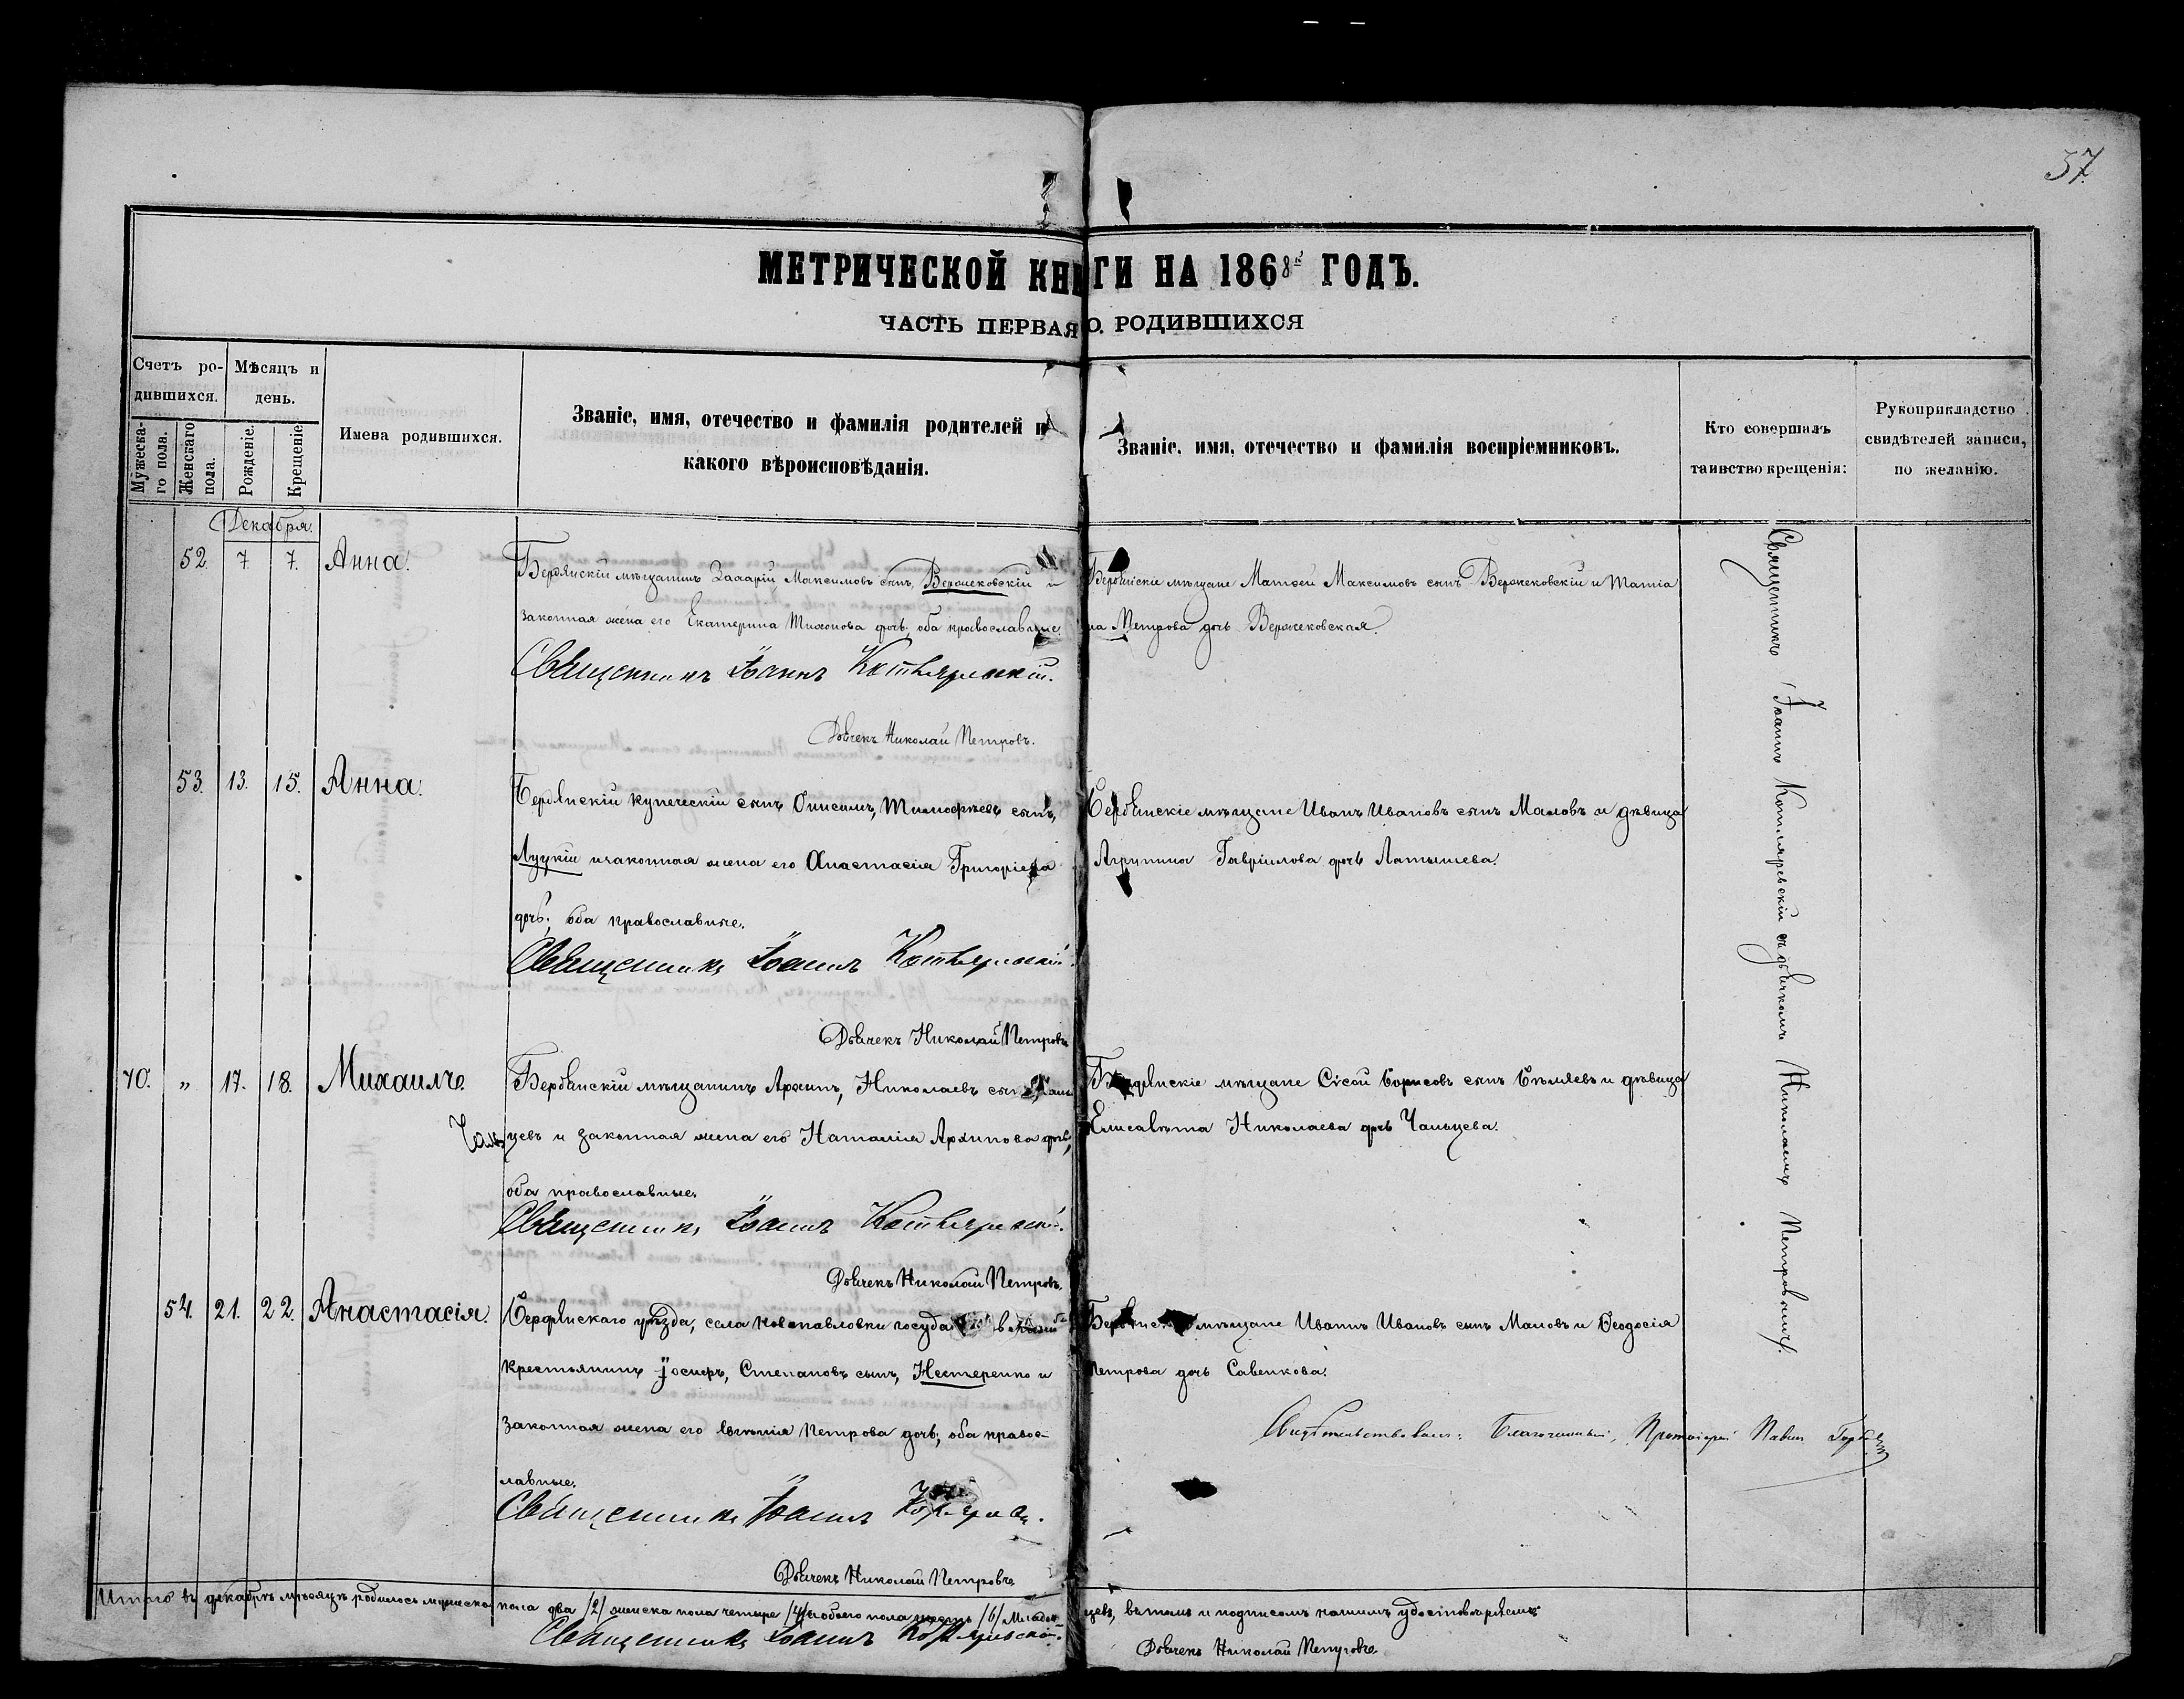 37.
МЕТРИЧЕСКОЙ КНИГИ НА 1868й ГОДЪ.
ЧАСТЬ ПЕРВАЯ О РОДИВШИХСЯ
Счетъ ро-
дившихся.
Мужеска-
го пола.
Женскаго
пола.
Мѣсяцъ и
день.
Рожденіе.
Крещеніе.
Имена родившихся.
Званіе, имя, отечество и фамилія родителей и
какого вѣроисповѣданія.
Званіе, имя, отечество и фамилія воспріемниковъ.
Кто совершалъ
таинство крещенія:
Рукоприкладство
свидѣтелей записи,
по желанію.
Декабря.
52. 7. 7. Анна.
Бердянскій мѣщанинъ Захарій Максимовъ сынъ, Вержековскій и
законная жена его Екатерина Тихонова дочь, оба православные.
Священникъ Іоаннъ Котляревскій.
Дьячекъ Николай Петровъ.
Бердянскіе мѣщане Матѳей Максимовъ сынъ Вержековскій и Татіа
на Петрова дочь Вержековская.
53. 13. 15. Анна.
Бердянскій купеческій сынъ Онисимъ, Тимофѣевъ сынъ,
Луцкій и законная жена его Анастасія Григоріева
дочь, оба православные.
Священникъ Іоаннъ Котляревскій.
Дьячекъ Николай Петровъ
Бердянскіе мѣщане Иванъ Ивановъ сынъ Маловъ и дѣвица
Агрипина Гавріилова дочь Латышева.
70. „ 17. 18. Михаилъ.
Бердянскій мѣщанинъ Архипъ, Николаевъ сынъ
Чальцевъ и законная жена его Наталія Архипова дочь,
оба православные.
Священникъ Іоаннъ Котляревскій.
Дьячекъ Николай Петровъ.
Бердянскіе мѣщане Сисой Борисовъ сынъ Бѣляевъ и дѣвица
Елисавѣта Николаева дочь Чальцева.
54. 21. 22. Анастасія.
Бердянскаго уѣзда, села Новопавловки
крестьянинъ Іосифъ, Степановъ сынъ, Нестеренко и
законная жена его Евгенія Петрова дочь, оба правос-
лавные.
Священникъ Іоаннъ
Дьячекъ Николай Петровъ
Бердянскіе мѣщане Иванъ Ивановъ сынъ Маловъ и Ѳеодосія
Петрова дочь Савенкова.
Свидѣтельствовалъ: Благочинный, Протоіерей Павелъ
Священникъ Іоаннъ Котляревскій съ дьячкомъ Николаемъ Петровымъ.
Итого въ декабрѣ мѣсяцѣ родилось мужеска пола два /2/ женска пола четыре /4/ а обоего пола шесть /6/ младен-
цевъ, въ томъ и подписомъ нашимъ удостовѣряемъ
Священникъ Іоаннъ Котляревскій.
Дьячекъ Николай Петровъ.